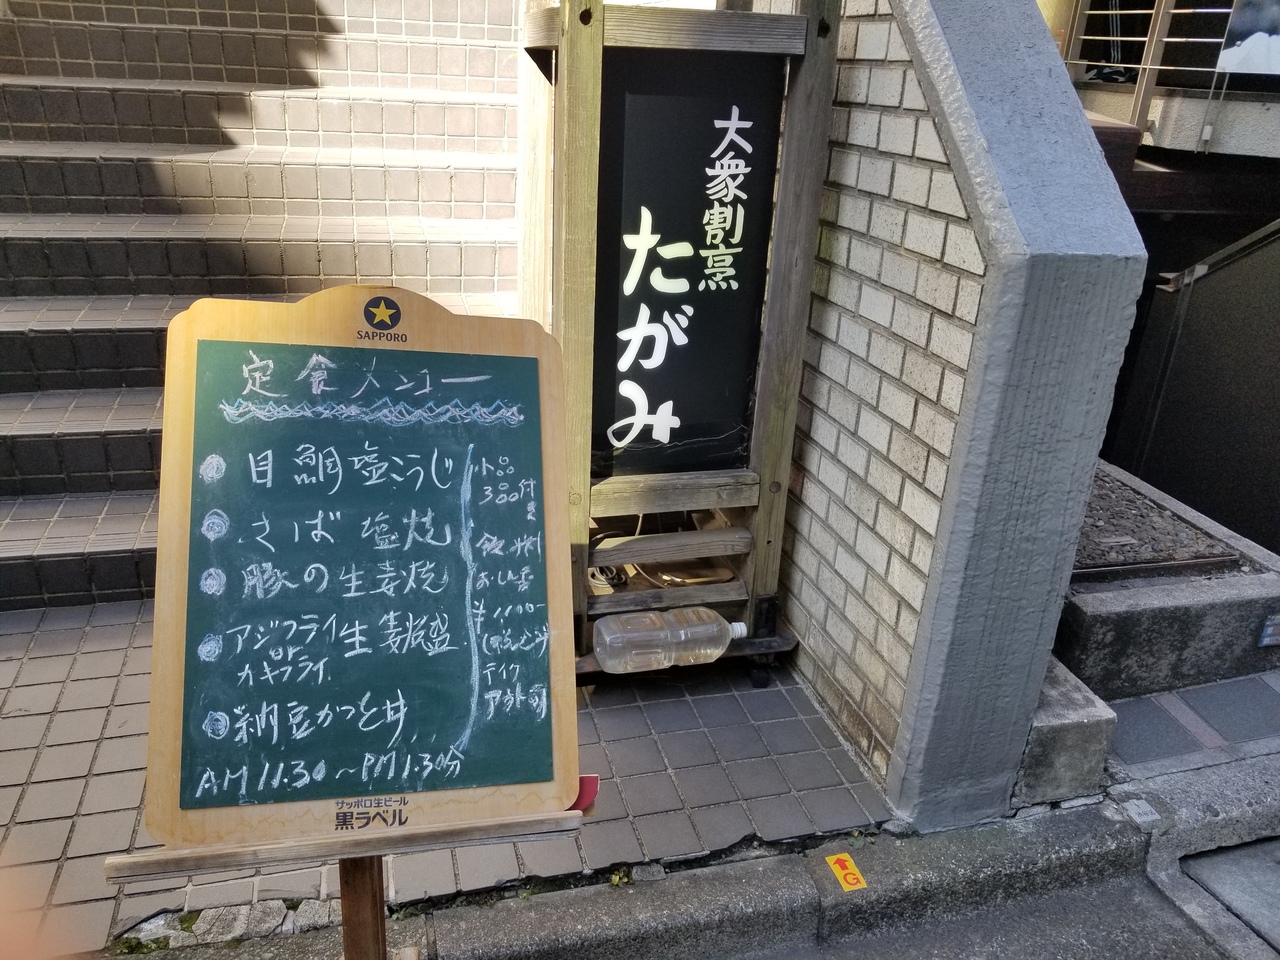 大衆割烹
たがみ
SAPPORO
定食メニュー
目鯛塩こうじ
さば 塩焼
豚の生姜焼
アジフライ生姜焼盛
or
カキフライ
納豆かつと丼
AM 11.30〜PM 1.30分
小品
3品付
飲み物
おしんこ
¥1,100-
テイク
アウト可
サッポロ生ビール
黒ラベル
G